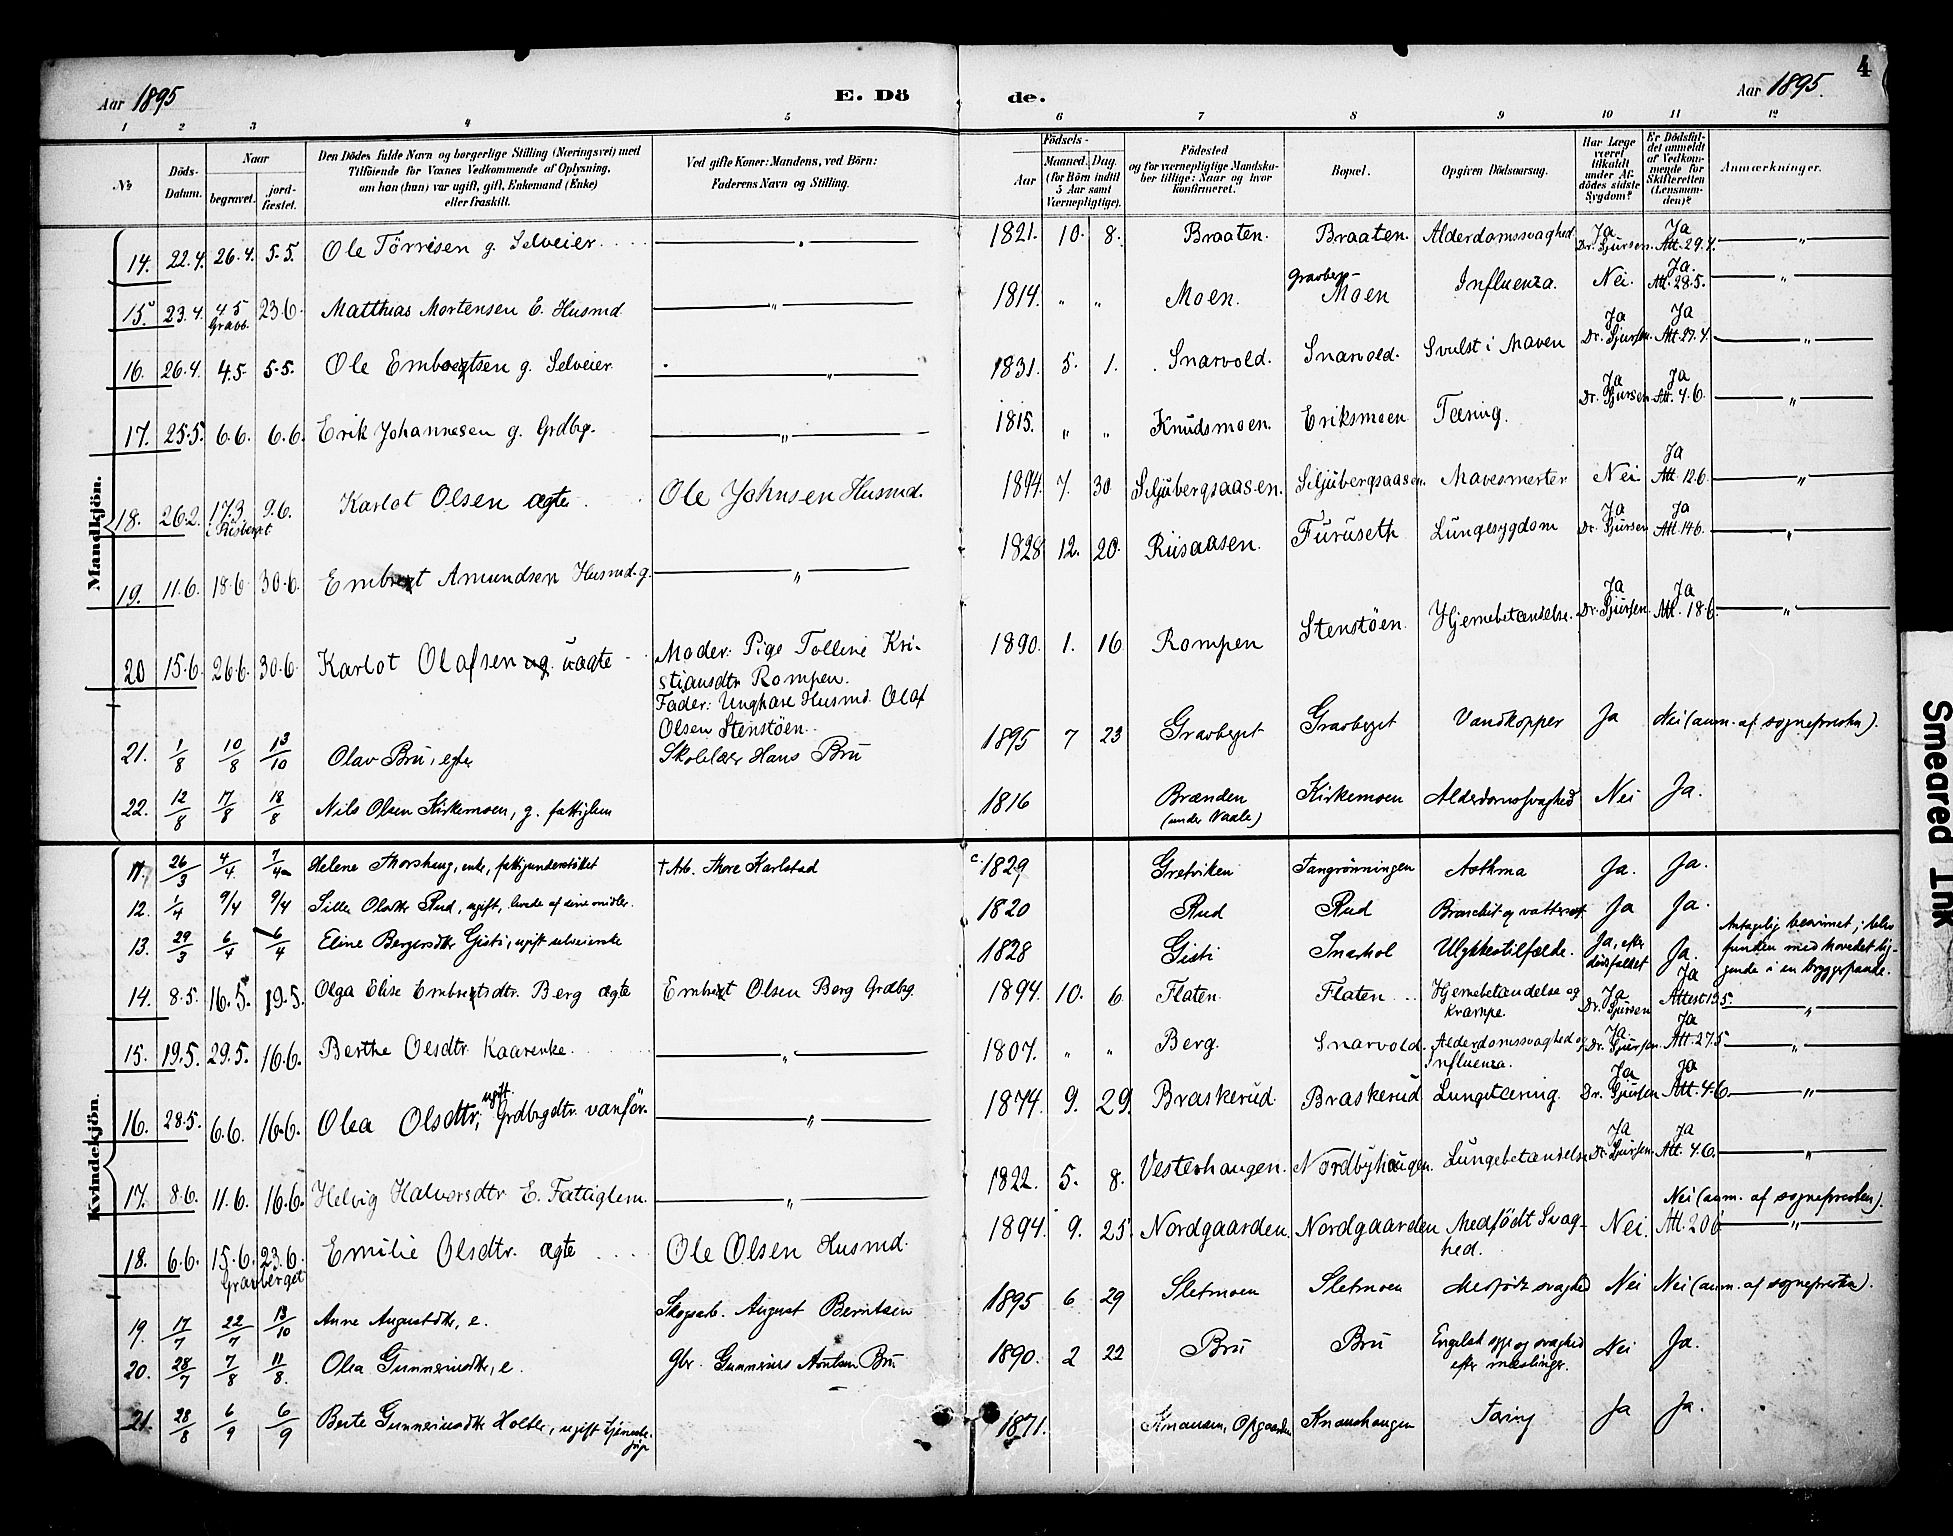 Aar 1895
E. Dö
de.
Aar 1895.
4
1 2 3 4 5 6 7 8 9 10 11 12
No
Döds-Datum.
Naar
begravet.
jord-fæstet.
Den Dödes fulde Navn og borgerlige Stilling (Næringsvei) med
Tilföiende for Voxnes Vedkommende af Oplysning,
om han (hun) var ugift, gift, Enkemand (Enke)
eller fraskilt.
Ved gifte Koner: Mandens, ved Börn:
Faderens Navn og Stilling.
Födsels-
Aar
Maaned. Dag.
(for Börn indtil
5 Aar samt
Værnepligtige).
Födested
og for værnepligtige Mandska-
ber tillige: Naar og hvor
konfirmeret.
Bopæl.
Opgiven Dödsaarsag.
Har Læge
været
tilkaldt
under Af-
dödes sidste
Sygdom?
Er Dödsfal-
det anmeldt
af Vedkom-
mende for
Skifteretten
(Lensman-
den)?
Anmærkninger.
Mandkjön.
14. 22.4. 26.4. 5.5. Ole Törrisen g. Selveier 1821. 10. 8. Braaten. Braaten. Alderdomssvaghed Ja Dr. Sjursen. Ja Att. 29.4. "
15. 23.4. 4.5 Gravb. 23.6. Matthias Mortensen E. Husmd. " 1814. " " Moen. Gravberg-Moen Influenza. Nei. Ja. Att. 28.5. "
16. 26.4. 4.5. 5.5. Ole Embretsen g. Selveier " 1831. 5. 1. Snarvold. Snarvold. Svulst i Maven Ja Dr. Sjursen. Ja Att. 27.4. "
17. 25.5. 6.6. 6.6. Erik Johannesen g. Grdbg. " 1815. " " Knudsmoen. Eriksmoen Tæring. Ja Dr. Sjursen Ja Att. 4.6. "
18. 26.2. 17.3. i Risberget 9.6. Karlot Olsen ægte Ole Johnsen Husmd. 1894. 7. 30 Siljubergsaasen. Siljubergsaasen. Mavesmerter Nei Ja Att. 12.6. "
19. 11.6. 18.6 30.6. Embret Amundsen Husmd. g. " 1828 12. 20. Riisaasen. Furuseth Lungesygdom Ja Dr. Sjursen Ja Att. 14.6. "
20 15.6. 26.6. 30.6. Karlot Olafsen uægte Moder: Pige Tolline Kri-
stiansdtr Rompen.
Fader: Ungkarl Husmd. Olaf
Olsen Stenstöen. 1890. 1. 16 Rompen Stenstöen. Hjernebetændelse. Ja Dr. Sjursen. Ja Att. 18.6. "
21. 1/8 10/8 13/10 Olav Bru, egte Skolelær Hans Bru 1895 7 23 Gravberget Gravberget Vandkopper Ja Nei (anm. af sognepresten).
22. 12/8 17/8 18/8 Nils Olsen Kirkemoen, g. fattiglem 1816 Brænden (under Vaale) Kirkemoen Alderdomssvaghed Nei Ja.
Kvindekjön.
11. 26/3 4/4 7/4 Helene Thorshaug, enke, fattigunderstöttet † Arb. Thore Karlstad c. 1829 Gretviken Tangrönningen Asthma Ja. Ja.
12. 1/4 9/4 9/4 Sille Olsdtr Rud, ugift, levde af sine midler. 1820 Rud Rud Bronchit og vattersot Ja Ja.
13. 29/3 6/4 6/4 Eline Bergersdtr Gisti, ugift 1828 Gisti Snarhol Ulykkestilfælde. Ja, efter dödsfaldet Ja. Antagelig besvimet; blev
funden med hovedet lig-
gende i en bryggepande.
14. 8.5. 16.5. 19.5. Olga Elise Embretsdtr. Berg ægte Embret Olsen Berg Grdbg. 1894. 10. 6 Flaten. Flaten Hjernebetændelse og Krampe. Ja Dr. Sjursen Ja Attest 15.5. "
15. 19.5. 29.5. 16.6. Berthe Olsdtr. Kaarenke. " 1807. " " Berg. Snarvold. Alderdomssvaghed og Influenza. Ja. Dr. Sjursen. Ja Att. 27.5 "
16. 28.5. 6.6. 16.6. Olea Olsdtr, ugift. Grdbrgdtr. vanför. " 1874. 9. 29. Braskerud. Braskerud Lungetæring. Ja Dr. Sjursen Ja Att. 4.6. "
17. 8.6. 11.6. 16.6. Helvig Halvorsdtr E. Fattiglem. " 1822. 5. 8. Vesterhaugen. Nordbyhaugen. Lungebetændelse Ja Dr. Sjursen Ja Att. 4.6. "
18. 6.6. 15.6. Gravberget 23.6. Emilie Olsdtr. ægte Ole Olsen Husmd. 1894. 9. 25 Nordgaarden. Nordgaarden Medfödt Svag-
hed. Nei. Nei (anm. af sognepresten). Att. 20.6 "
19. 17/7 22/7 13/10 Anne Augustdtr, e. Skogsarb. August Berntsen 1895 6 29 Sletmoen Sletmoen Medfödt svaghed Nei Nei (anm. af sognepresten).
20. 28/7 7/8 11/8. Olea Gunneriusdtr, e. Gbr. Gunnerius Arntsen Bru 1890. 2 22 Bru Bru Engelsk syge og svaghed
efter mæslinger. Nei Ja.
21. 28/8 6/9 6/9 Berte Gunneriusdtr Holte, ugift tjeneste-
pige 1871. Knausen, Opgaarden Knaushaugen Tæring Ja Ja.
Smeared Ink